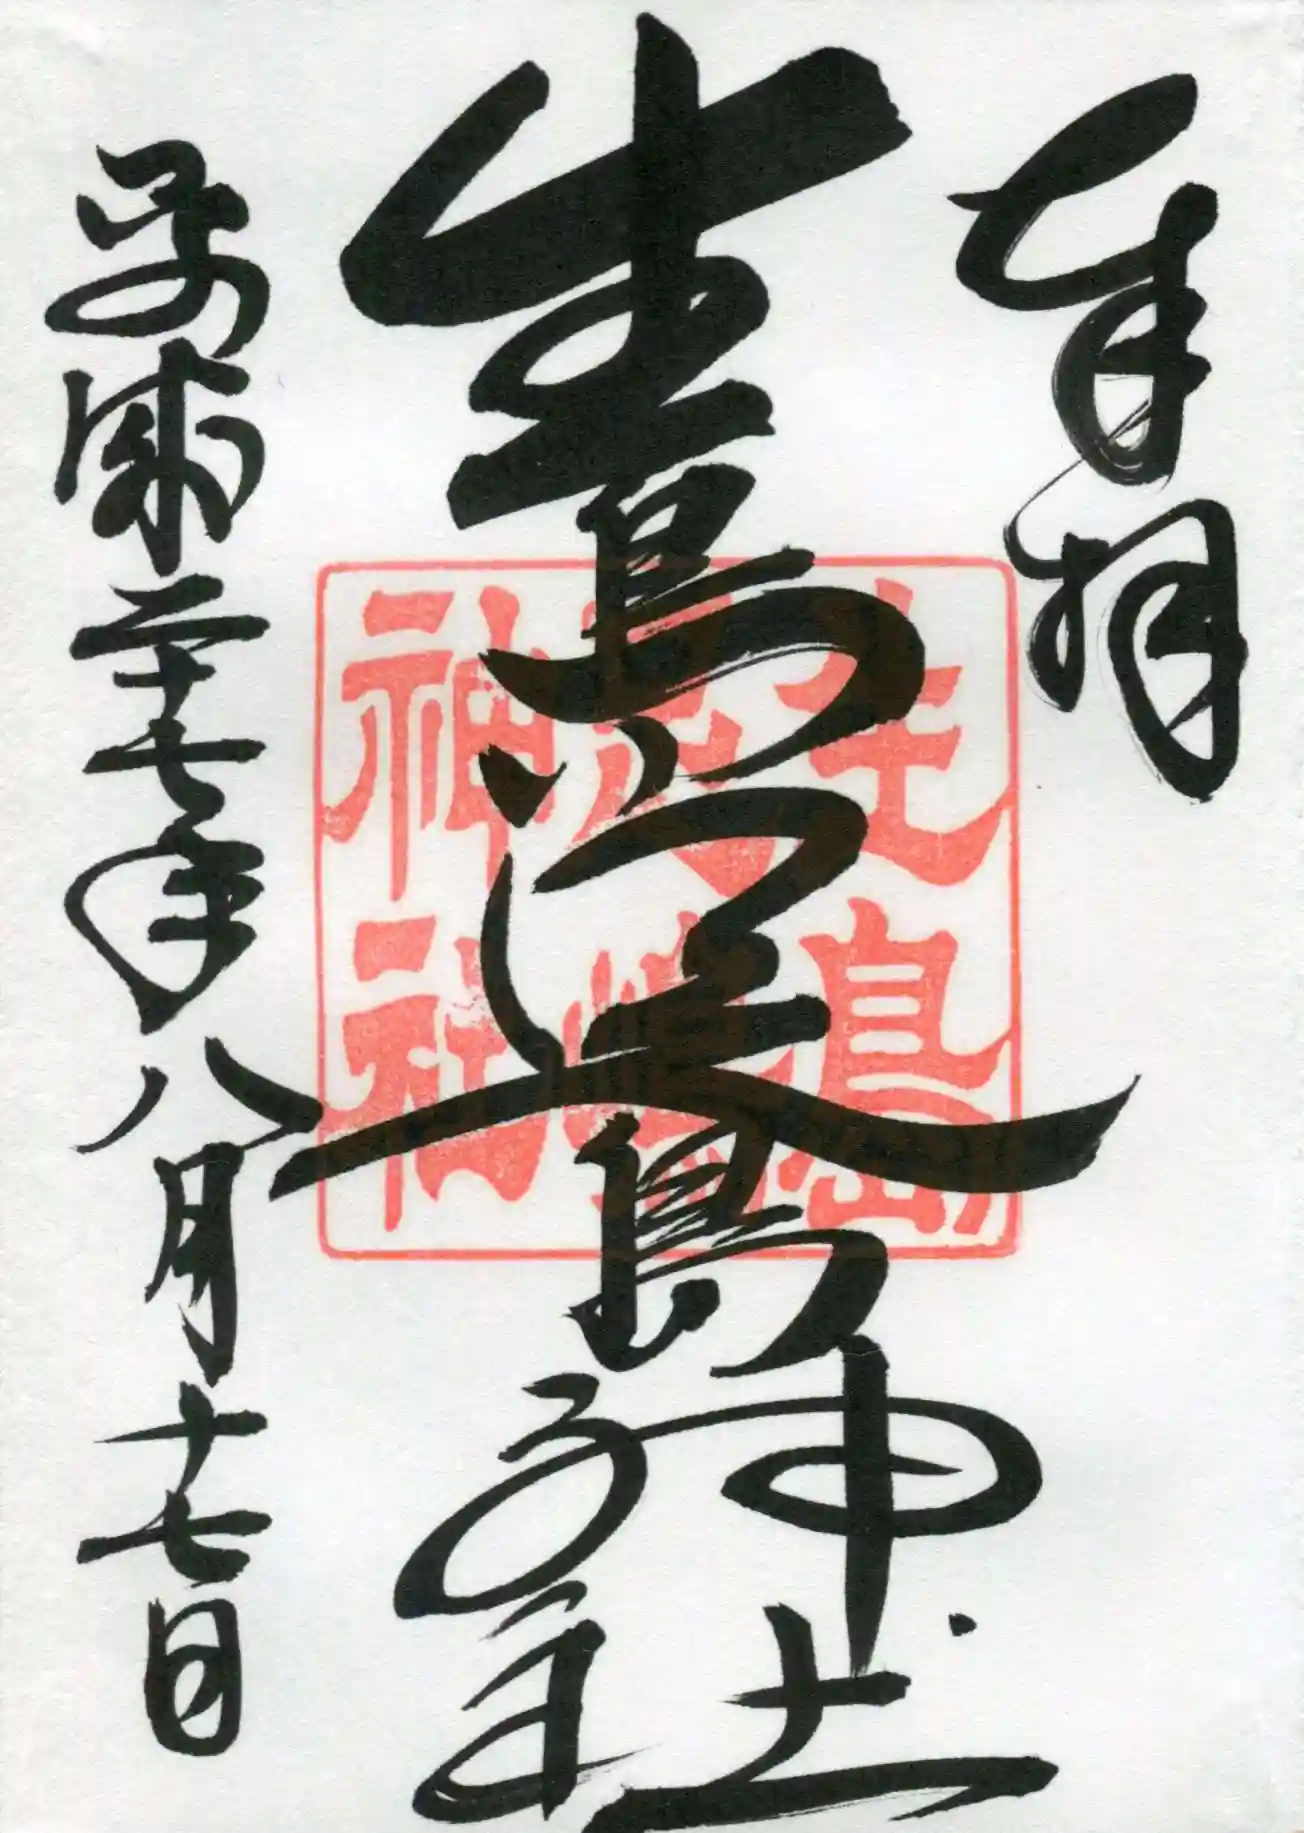 奉拝
生島足島神社
平成二十七年八月十七日
生島
足島
神社